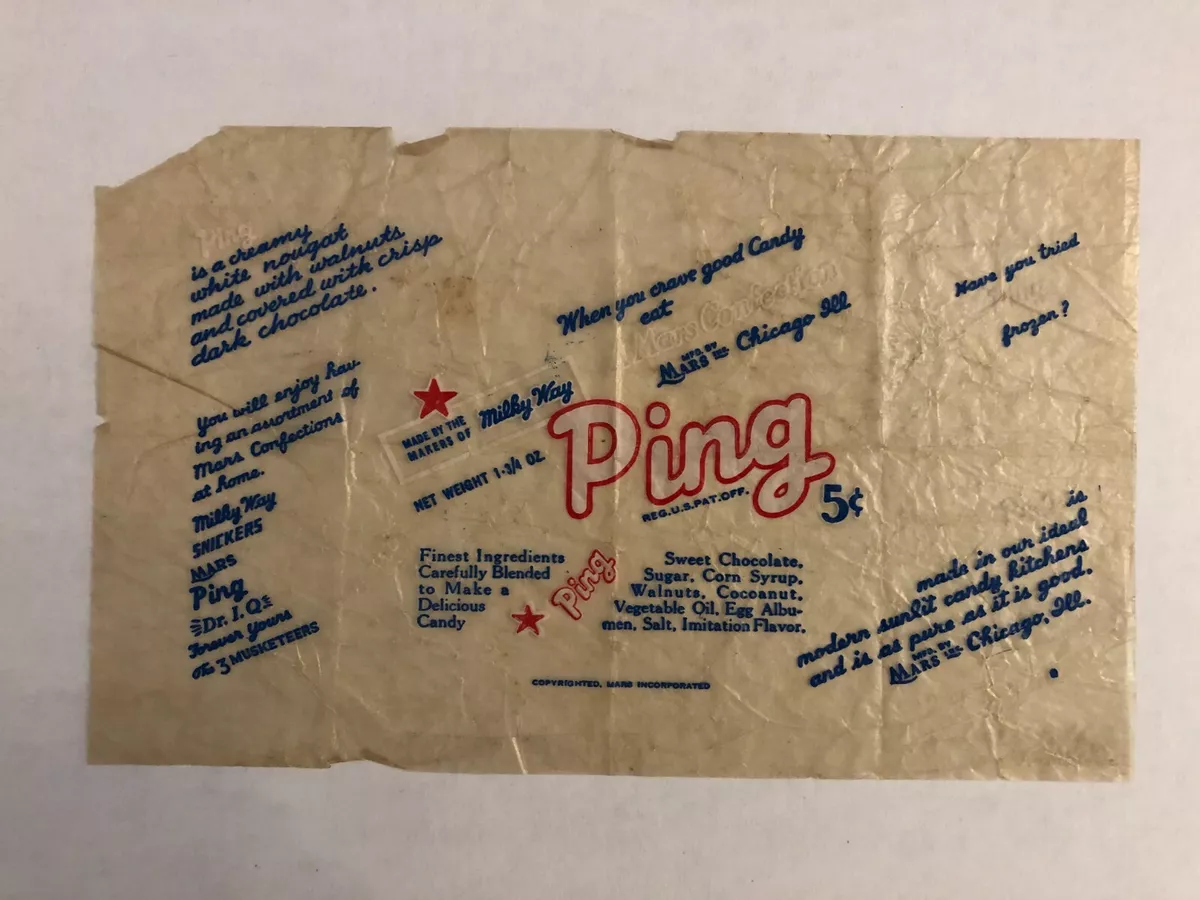 Ping
is a creamy
white nougat
made with walnuts
and covered with crisp
dark chocolate.
You will enjoy hav-
ing an assortment of
Mars Confections
at home.
Milky Way
SNICKERS
MARS
Ping
Dr. I.Q.
Forever Yours
The 3 MUSKETEERS
When you crave good Candy
eat
Mars Confection
MFG. BY
MARS INC. Chicago Ill
MADE BY THE
MAKERS OF Milky Way
NET WEIGHT 1-3/4 OZ.
Ping
REG.U.S.PAT.OFF.
5¢
Finest Ingredients
Carefully Blended
to Make a
Delicious
Candy
Ping
Sweet Chocolate,
Sugar, Corn Syrup,
Walnuts, Cocoanut,
Vegetable Oil, Egg Albu-
men, Salt, Imitation Flavor.
COPYRIGHTED, MARS INCORPORATED
Have you tried
Ping
frozen?
is
made in our ideal
modern sunlit candy kitchens
and is as pure as it is good.
MFG. BY
MARS INC. Chicago, Ill.